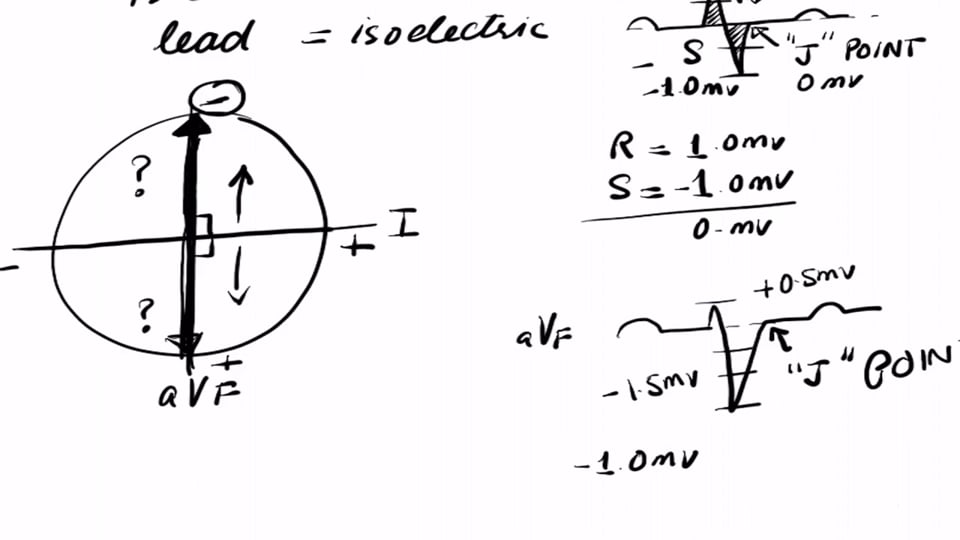 lead = isoelectric
S "J" POINT
- -1.0mv 0 mv
R = 1.0mv
S = -1.0mv
0. mv
-
? 
I
- +
?
+
aVF
+0.5mv
aVF
-1.5mv "J" POIN
-1.0mv